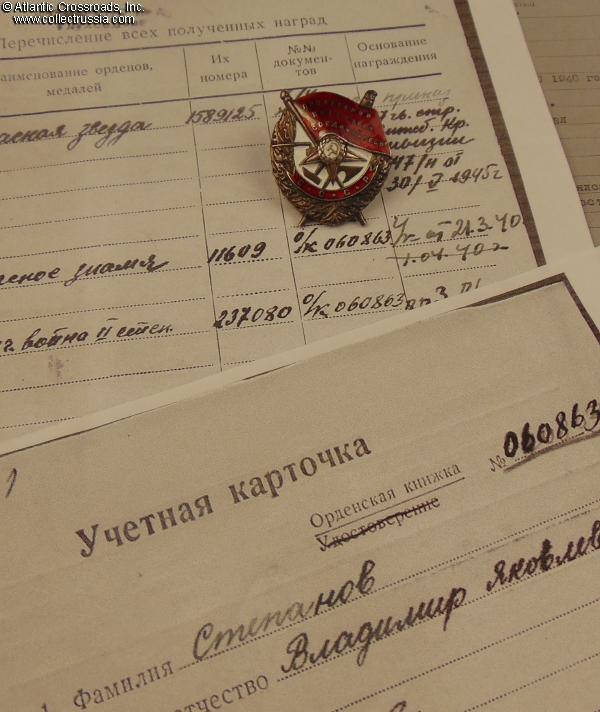 © Atlantic Crossroads, Inc.
www.collectrussia.com
Перечисление всех полученных наград
аименование орденов, медалей
Их номера
№№ докумен-тов
Основание награждения
асная звезда 1589125 приказ
гв. стр.
Кр.
47/н от
30/V-1945г
асное знамя 11609 о/к 060863 Ук от 21.3.40
1.04.40г
война II степ. 237080 о/к 060863
1
Учетная карточка
№ 060863
Орденская книжка
Удостоверение
1. Фамилия Степанов
тчество Владимир Яковлев